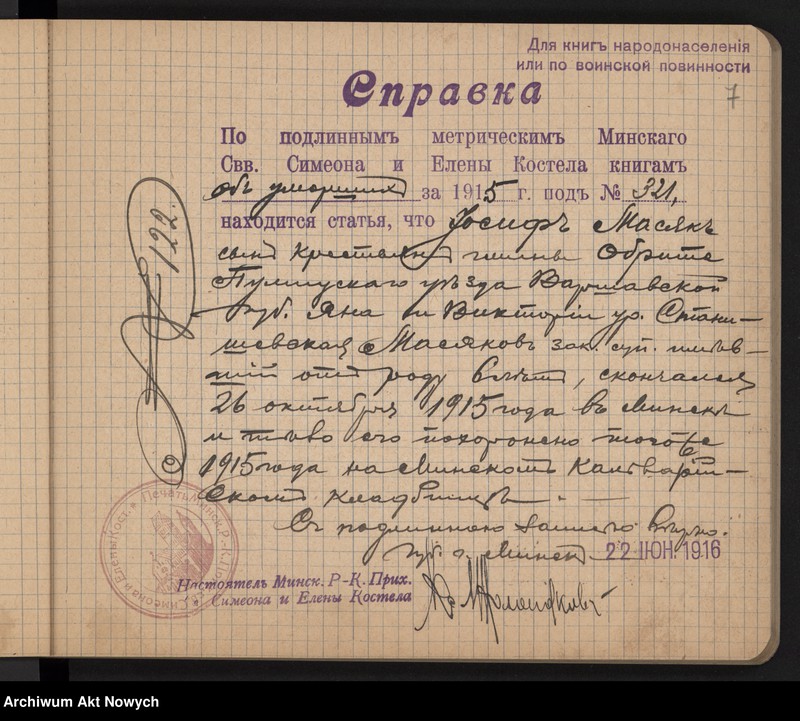 Для книгъ народонаселенія
или по воинской повинности
7
Справка
По подлиннымъ метрическимъ Минскаго
Свв. Симеона и Елены Костела книгамъ
объ умершихъ за 1915 г. подъ № 321,
находится статья, что Іосифъ Масякъ
сынъ крестьянъ гмины Обрите
Пултускаго уѣзда Варшавской
губ. Яна и Викторіи ур. Стани-
шевская Масяковъ зак. суп. имѣв-
шій отъ роду лѣтъ, скончался
26 октября 1915 года въ Минскѣ
и тѣло его похоронено того же
1915 года на Минскомъ Кальварій-
скомъ кладбищѣ.
Съ подлинною вѣрно.
г. Минскъ 22 ІЮН. 1916
Настоятель Минск. Р-К. Прих.
Симеона и Елены Костела
1221
Archiwum Akt Nowych